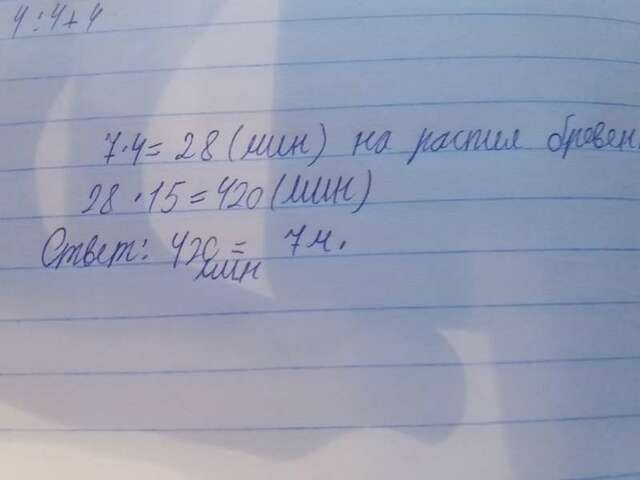 4:4+4
7·4=28(мин) на распил бревен.
28·15=420(мин)
Ответ: 420 мин = 7ч.